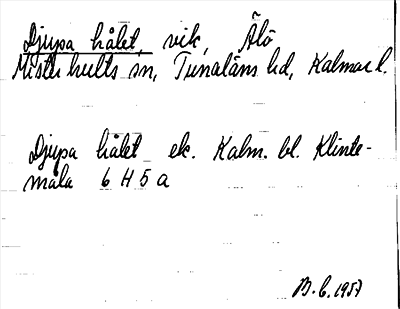 Djupa hålet, vik, Älö
Misterhults sn, Tunaläns hd, Kalmar l.
Djupa hålet ek. Kalm. bl. Klinte-
måla 6 H 5 a
B.C. 1957